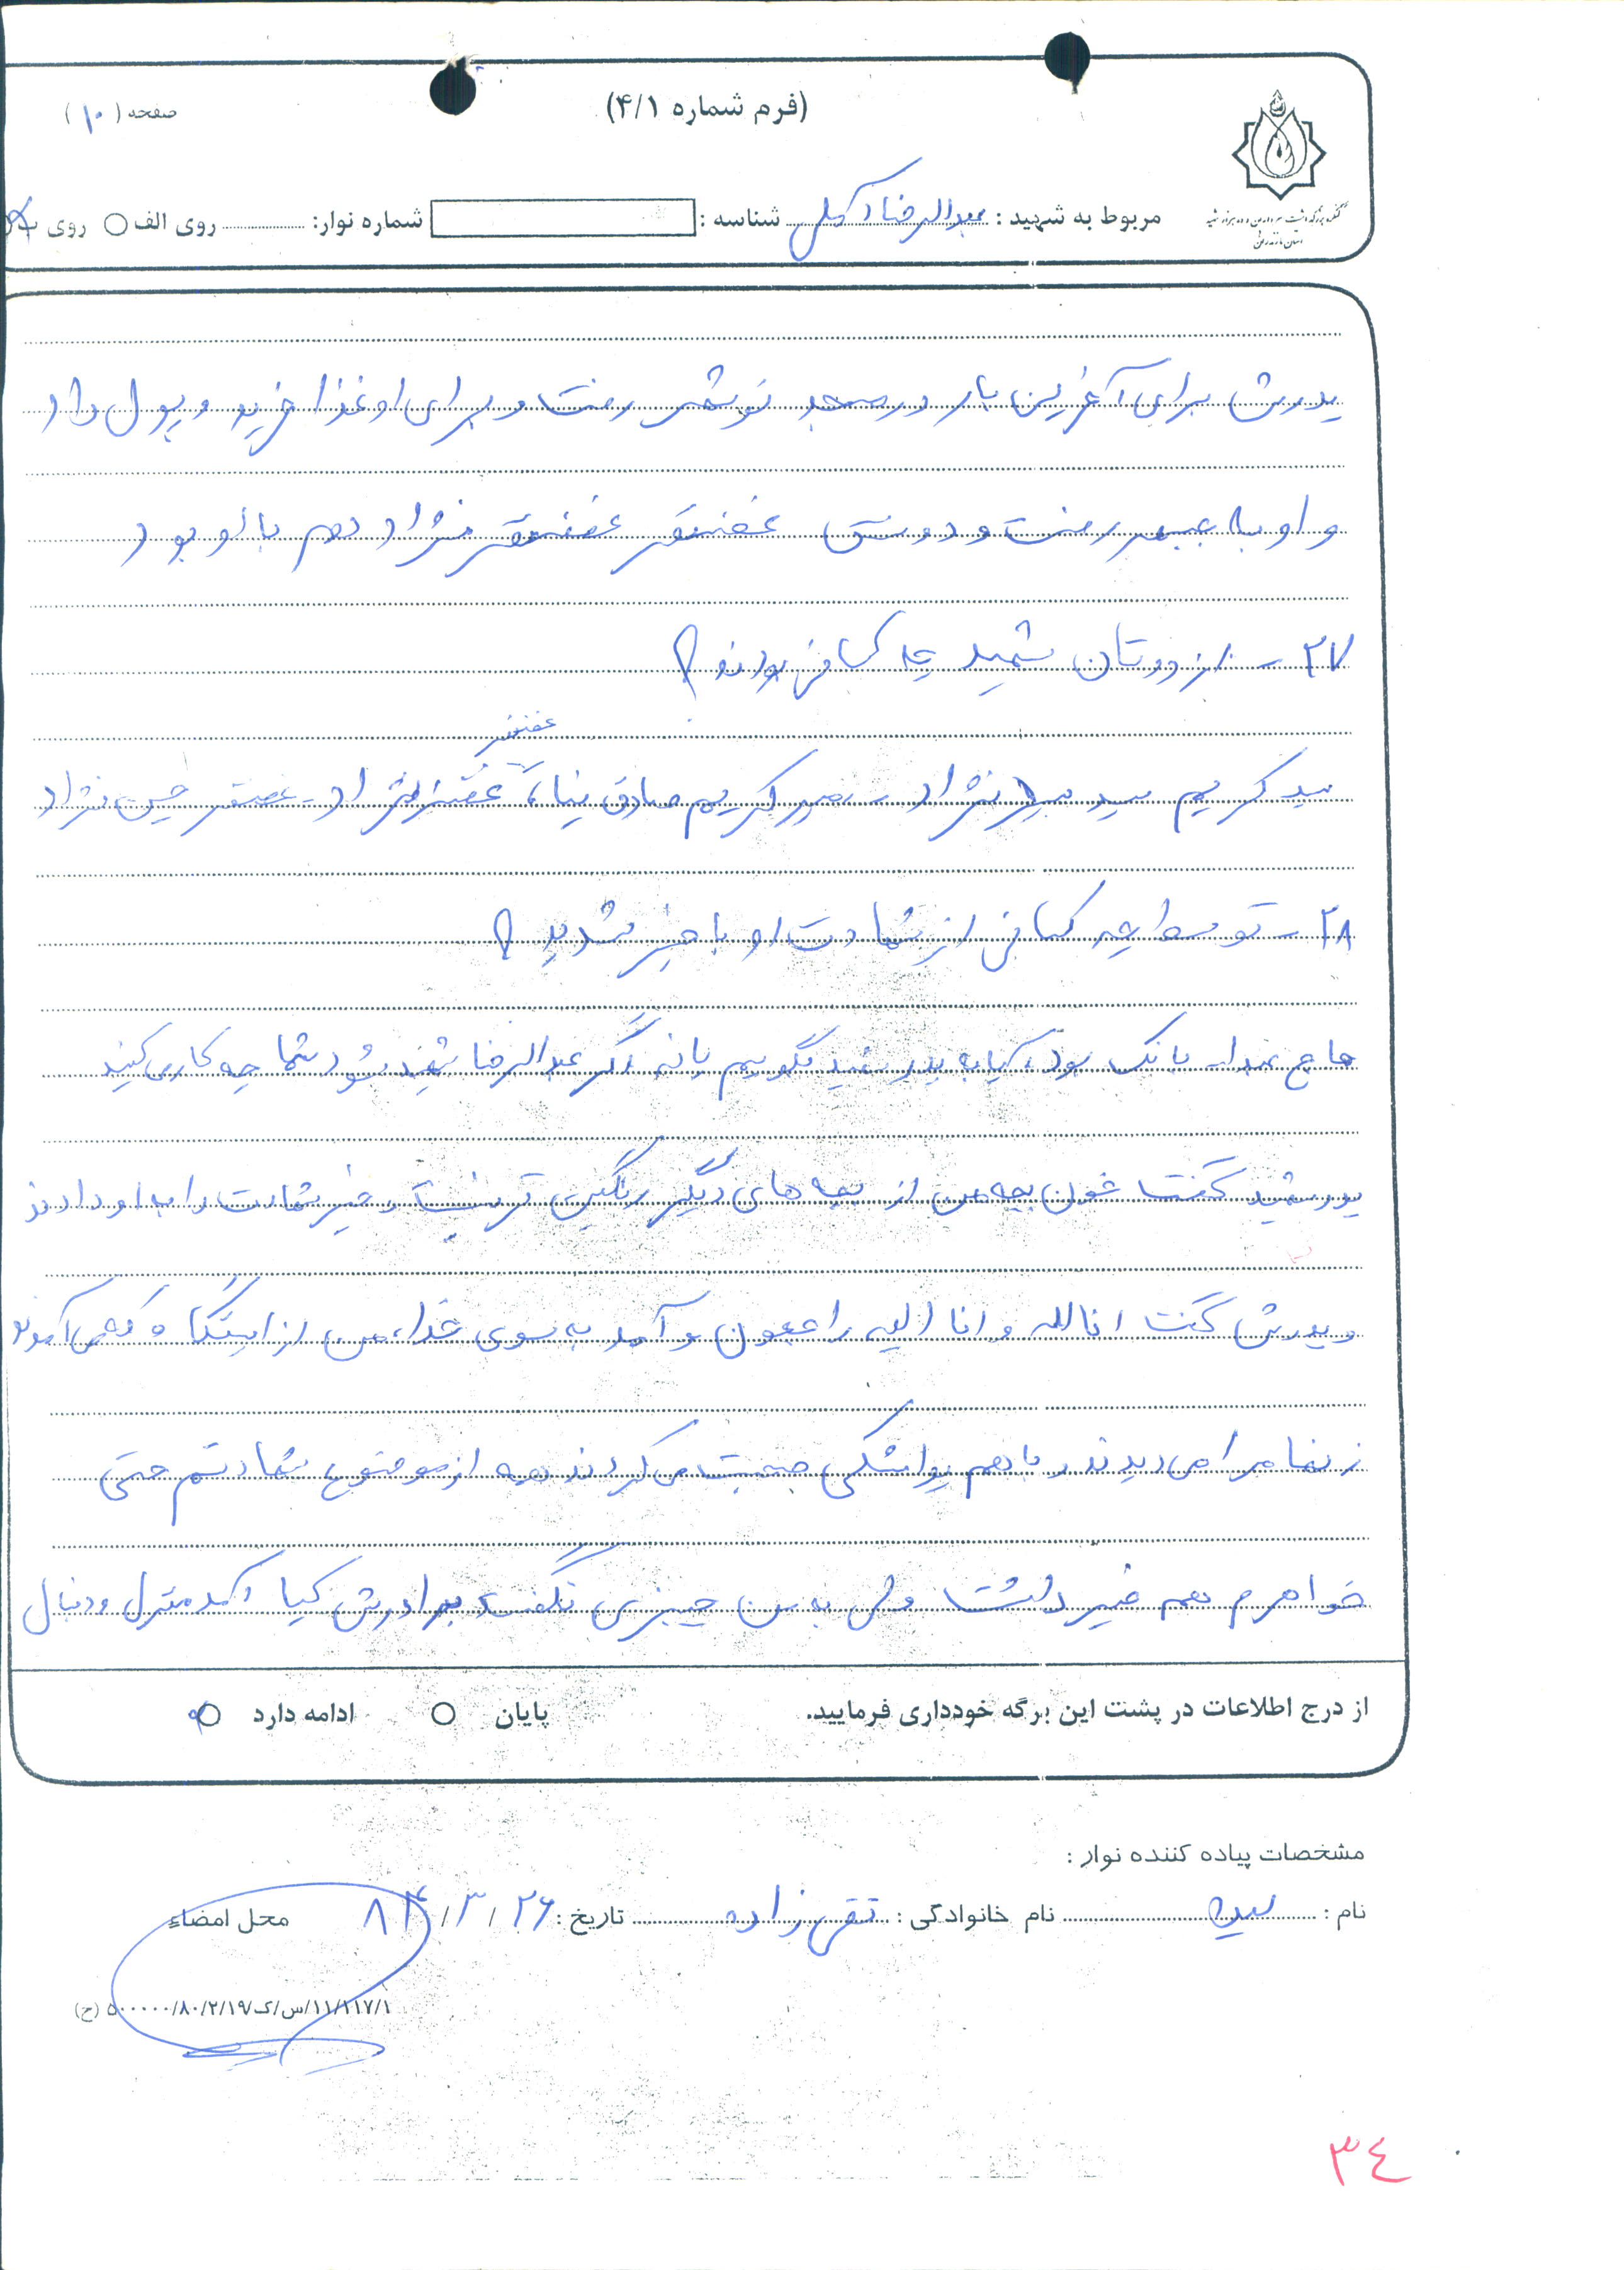 (فرم شماره ۴/۱)
صفحه (۱۰)
مربوط به شهید : عبدالرضا آکملی شناسه : شماره نوار: روی الف روی ب
کنگره بزرگداشت سرداران و ده هزار شهید
استان مازندران
پدرش برای آخرین بار در مسجد نوشهر رفت و برای او غذا خرید و پول داد
و او به جبهه رفت و دوستش غضنفر غضنفرنژاد هم با او بود
۲۷ – از دوستان شهید چه کسانی بودند ؟
غضنفر
سید کریم سید میرنژاد - کریم صادق نیا، نژاد - غضنفر حسین نژاد
۲۸ – توسط چه کسانی از شهادت او با خبر شدید ؟
حاج عبداله بانک بود، آیا به پدر شهید بگوییم یا نه اگر عبدالرضا شهید شود شما چه کاری کنید
پدر شهید گفت خون بچه من از بچه های دیگر رنگین تر نیست و خبر شهادت را به او دادند
و پدرش گفت انا لله و انا الیه راجعون و آمد به سوی خدا، من از ایستگاه که می آمدم
زنها مرا می دیدند و با هم یواشکی صحبت می کردند همه از موضوع شهادتم حتی
خواهرم هم خبر داشت ولی به من چیزی نگفت برادرش کیا آمد منزل و دنبال
از درج اطلاعات در پشت این برگه خودداری فرمایید. پایان ادامه دارد
مشخصات پیاده کننده نوار :
نام : سیده نام خانوادگی : تقی زاده تاریخ : ۲۶ / ۳ / ۸۴ محل امضاء
۱۱/۱۱۷/۱/س/ک/۸۰/۲/۱۹/۵۰۰۰۰۰ (ح)
۳٤